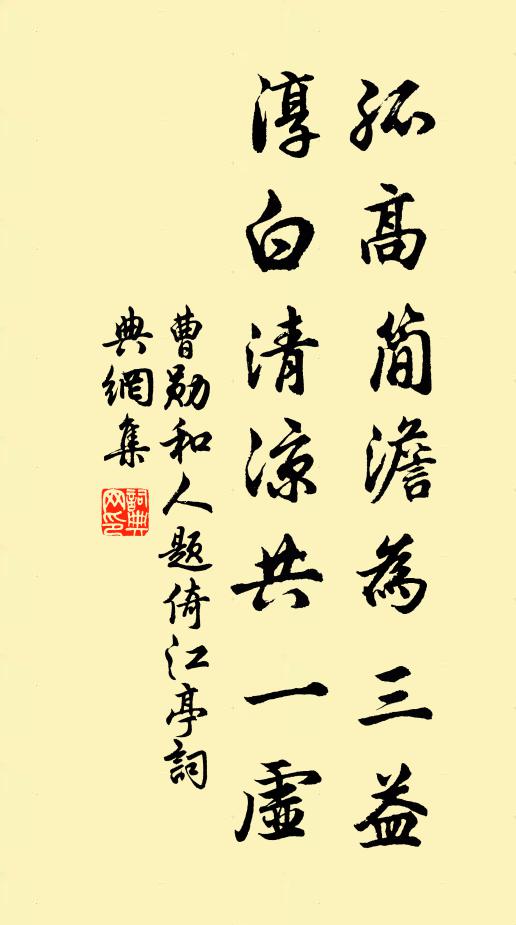 孤高簡澹為三益
淳白清涼共一虛
曹勛和人題倚江亭詞
典網集
詞典網印